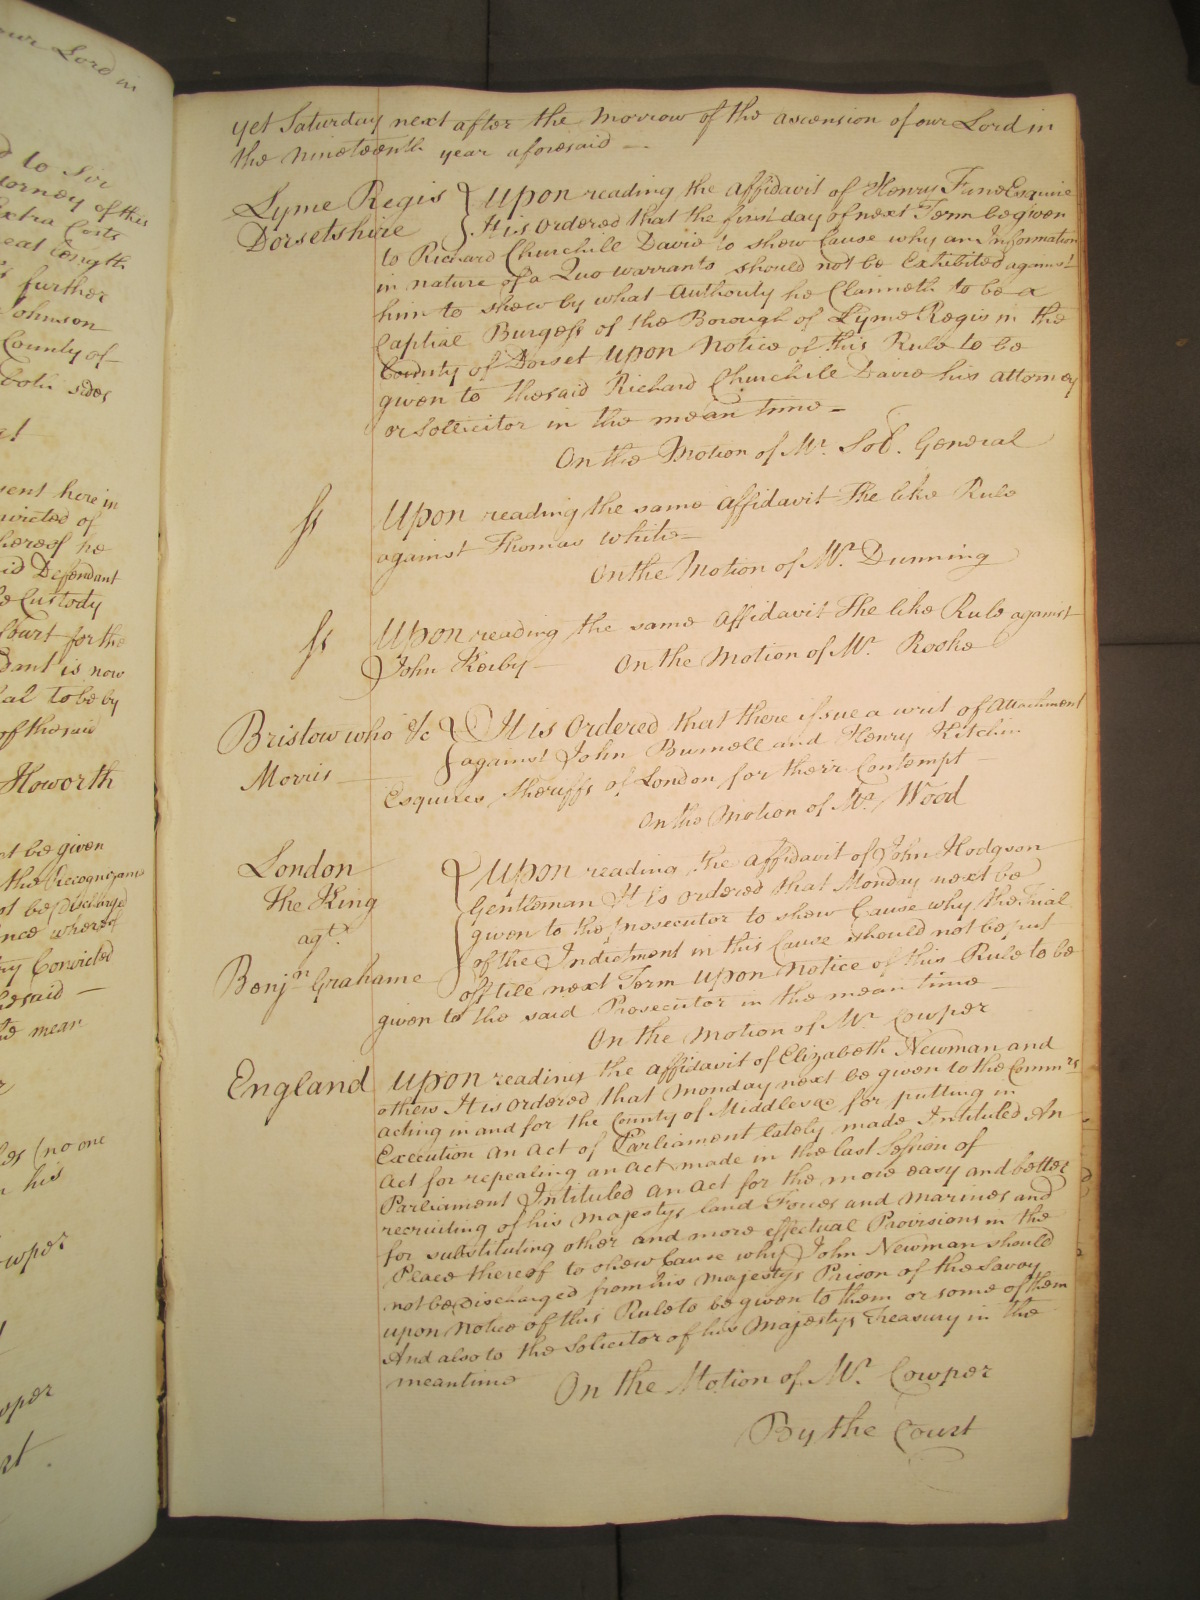 our Lord in
d to Sir
torney of this
Extra Costs
reat Length
further
Johnson
County of
both sides
sent here in
nvicted of
hereof he
id Defendant
e Custody
Court for the
dant is now
al to be by
of the said
Howorth
t be given
the Recognizance
ot be discharged
nce whereof
ny Convicted
resaid —
te mean
des (no one
n his
owper
wper
rt.
yet Saturday next after the Morrow of the ascension of our Lord in
the Nineteenth year aforesaid —
Lyme Regis
Dorsetshire
Upon reading the affidavit of Henry Fane Esquire
It is ordered that the first day of next Term be given
to Richard Churchill Davie to shew Cause why an Information
in nature of a Quo warranto should not be Exhibited against
him to shew by what Authority he Claimeth to be a
Capital Burgess of the Borough of Lyme Regis in the
County of Dorset Upon Notice of this Rule to be
given to the said Richard Churchill Davie his attorney
or Sollicitor in the mean time —
On the Motion of Mr. Sol. General
ss Upon reading the same affidavit The like Rule
against Thomas White —
On the Motion of Mr. Dunning
ss Upon reading the same affidavit The like Rule against
John Kerby — On the Motion of Mr. Rooke
Bristow who &c
Morris
It is Ordered that there issue a writ of Attachment
against John Burnell and Henry Kitchin
Esquires Sheriffs of London for their Contempt —
On the Motion of Mr. Wood
London
The King
agt.
Benjn. Grahame
Upon reading the affidavit of John Hodgson
Gentleman It is ordered that Monday next be
given to the Prosecutor to shew Cause why the Trial
of the Indictment in this Cause should not be put
off till next Term Upon Notice of this Rule to be
given to the said Prosecutor in the mean time —
On the Motion of Mr. Cowper
England Upon reading the affidavit of Elizabeth Newman and
others It is ordered that Monday next be given to the Commrs
acting in and for the County of Middlesex for putting in
Execution an act of Parliament lately made Intituled An
Act for repealing an act made in the last Session of
Parliament Intituled an Act for the more easy and better
recruiting of his Majestys land Forces and Marines and
for substituting other and more effectual Provisions in the
Place thereof to shew Cause why John Newman should
not be discharged from his Majestys Prison of the Savoy
upon Notice of this Rule to be given to them or some of them
And also to the Solicitor of his Majestys Treasury in the
meantime On the Motion of Mr. Cowper
By the Court